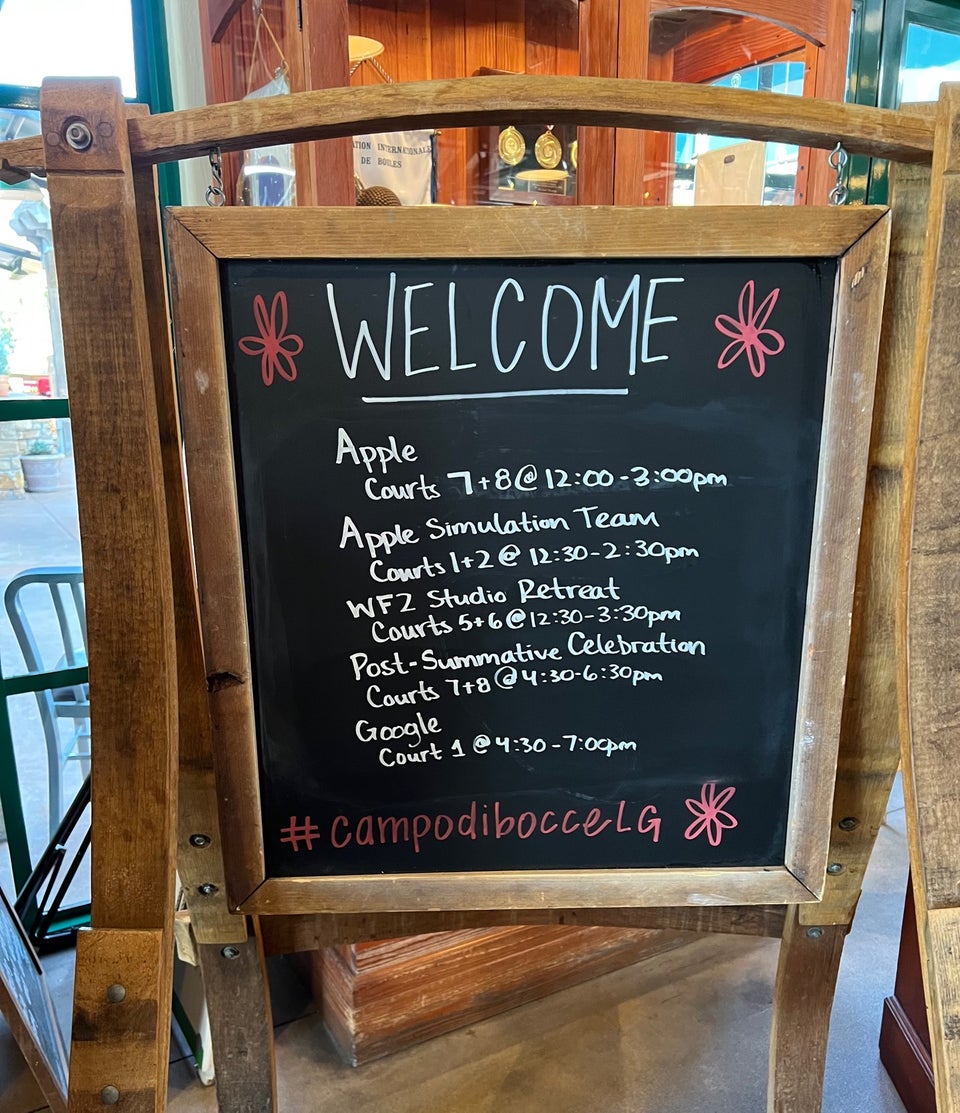 ATION INTERNATIONALE
DE BOULES
WELCOME
Apple
Courts 7+8 @ 12:00-3:00pm
Apple Simulation Team
Courts 1+2 @ 12:30-2:30pm
WF2 Studio Retreat
Courts 5+6 @ 12:30-3:30pm
Post-Summative Celebration
Courts 7+8 @ 4:30-6:30pm
Google
Court 1 @ 4:30-7:00pm
#campodibocceLG